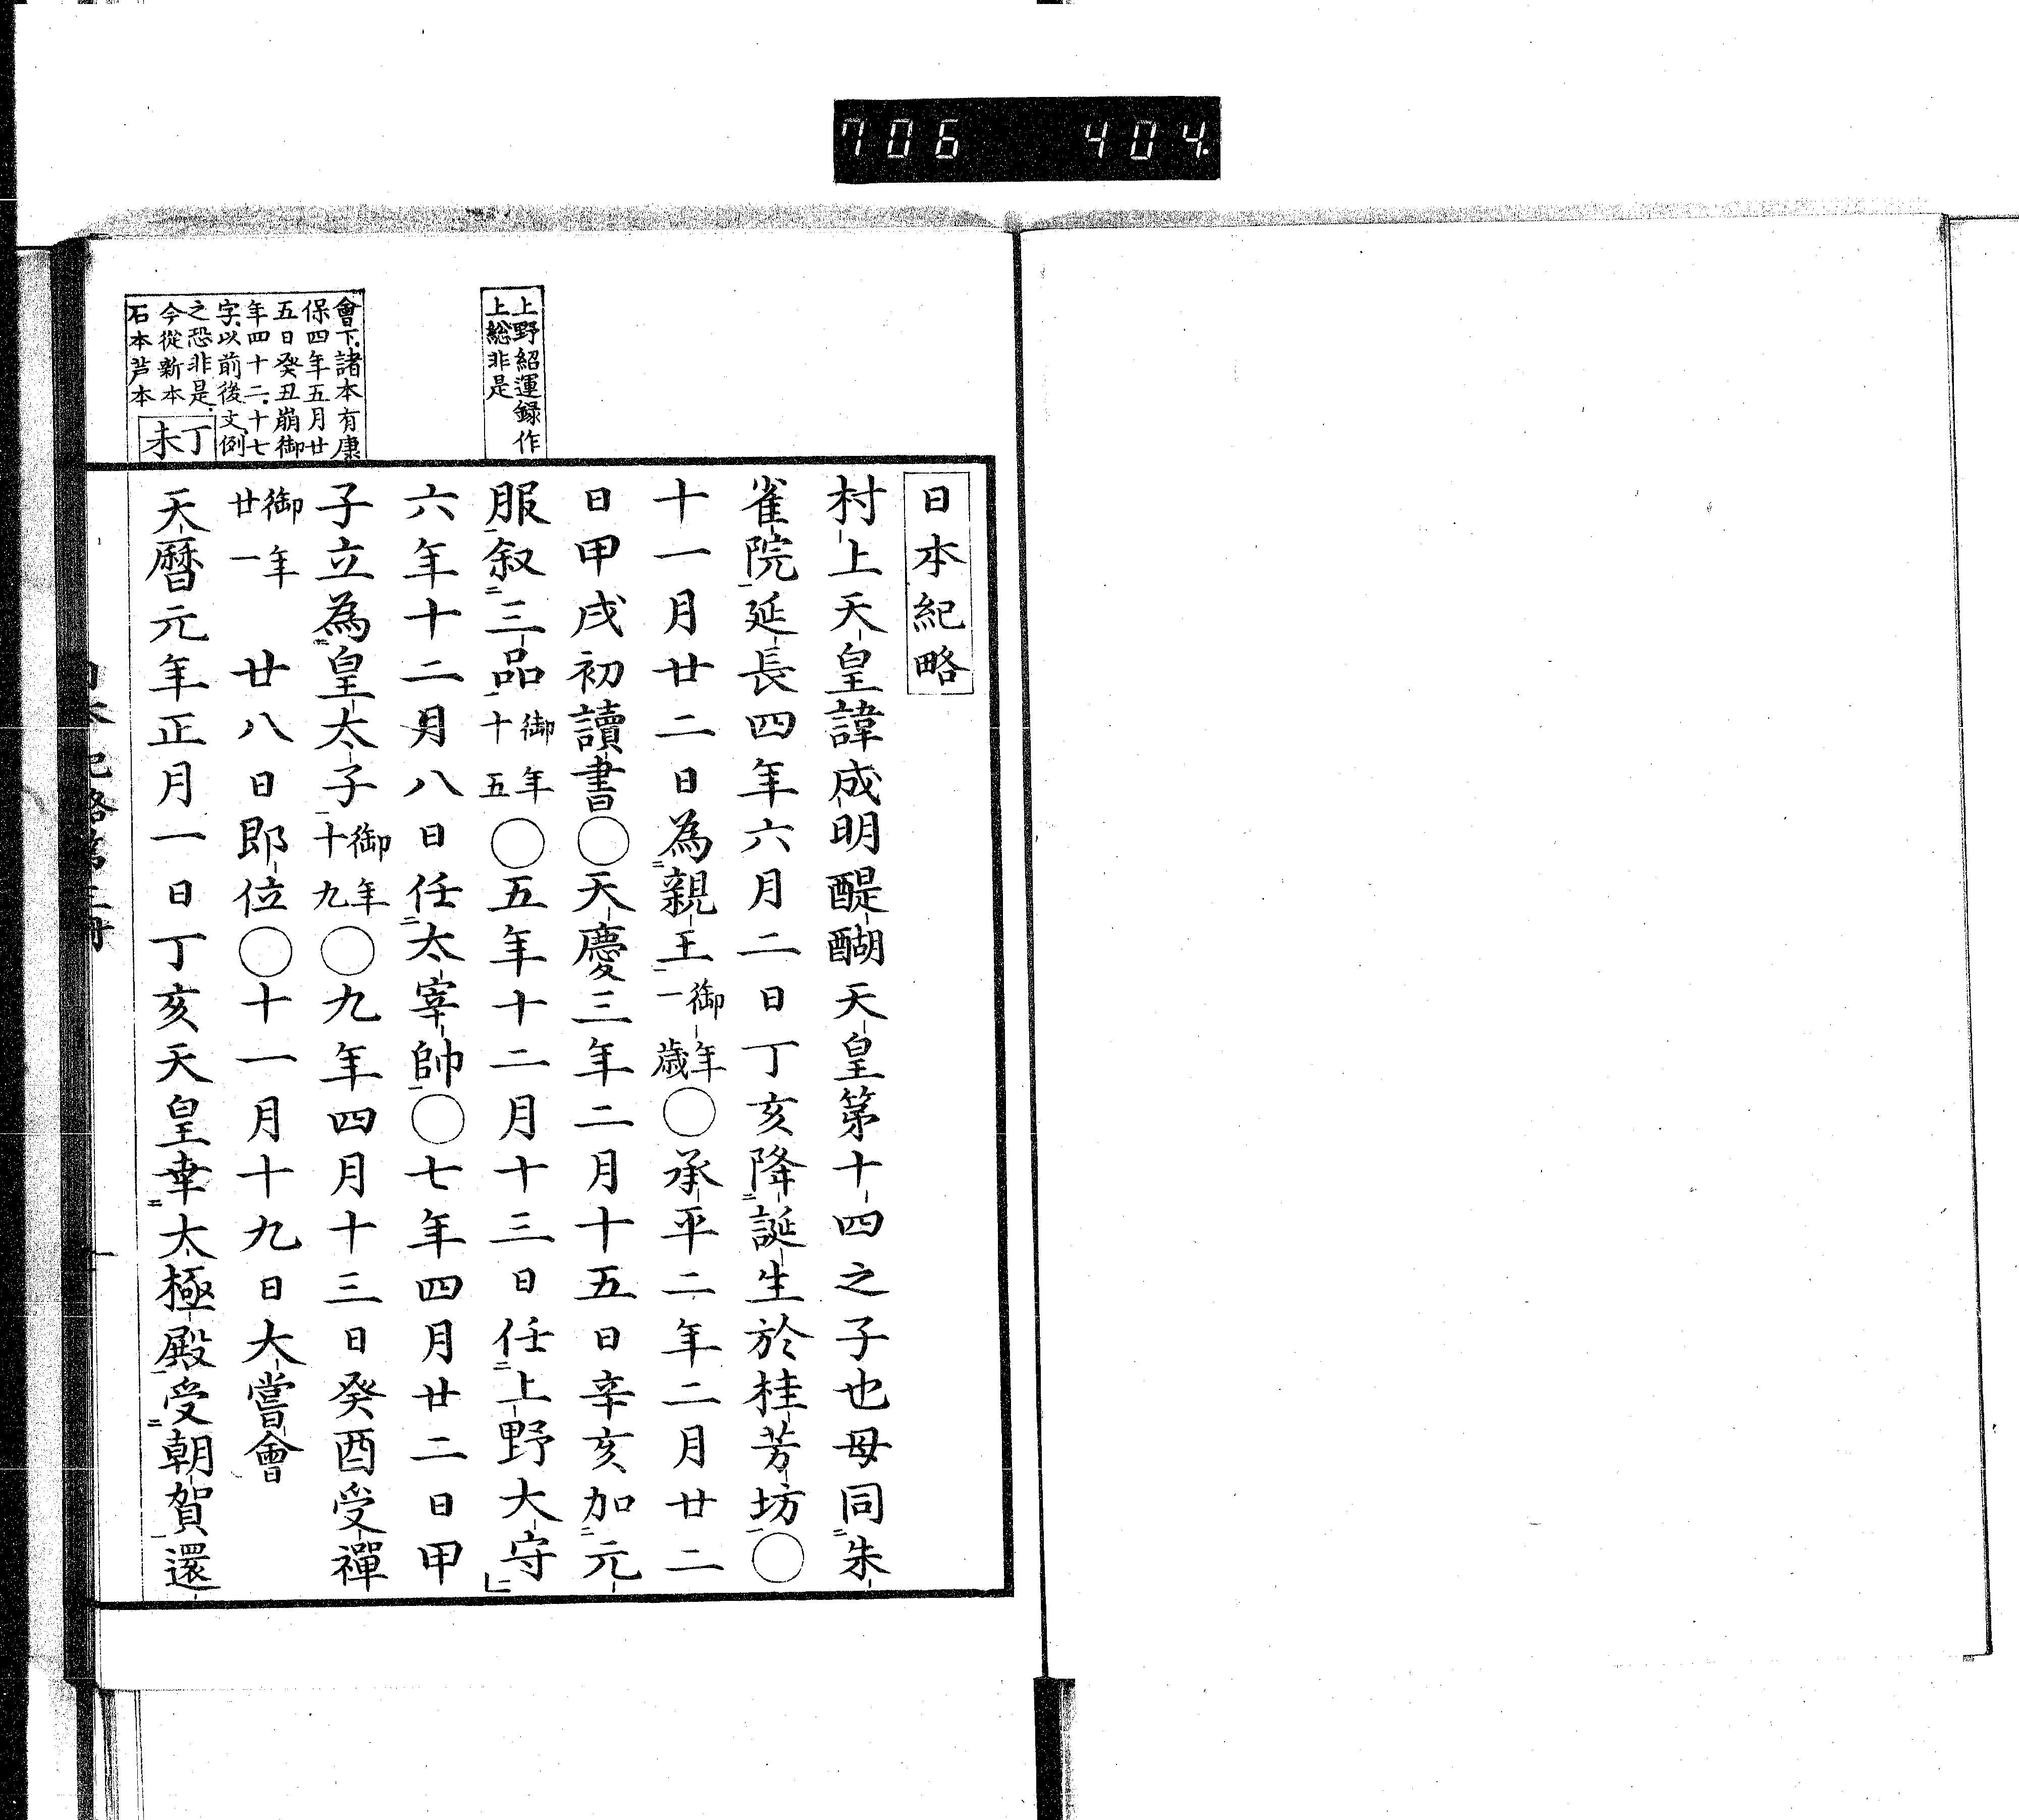 706 404.
日本紀略
村上天皇諱成明醍醐天皇第十四之子也母同朱
雀院延長四年六月二日丁亥降誕生於桂芳坊〇
十一月廿二日為親王御年一歳〇承平二年二月廿二
日甲戌初讀書〇天慶三年二月十五日辛亥加元
上野紹運録作
上総非是
服叙三品御年十五〇五年十二月十三日任上野大守
六年十二月八日任太宰帥〇七年四月廿二日甲
子立為皇太子御年十九〇九年四月十三日癸酉受禪
御年廿一 廿八日即位〇十一月十九日大嘗會
會下諸本有康
保四年五月廿
五日癸丑崩御
年四十二十七
字以前後文例
之恐非是
今從新本
石本芦本
丁未
天曆元年正月一日丁亥天皇幸大極殿受朝賀還